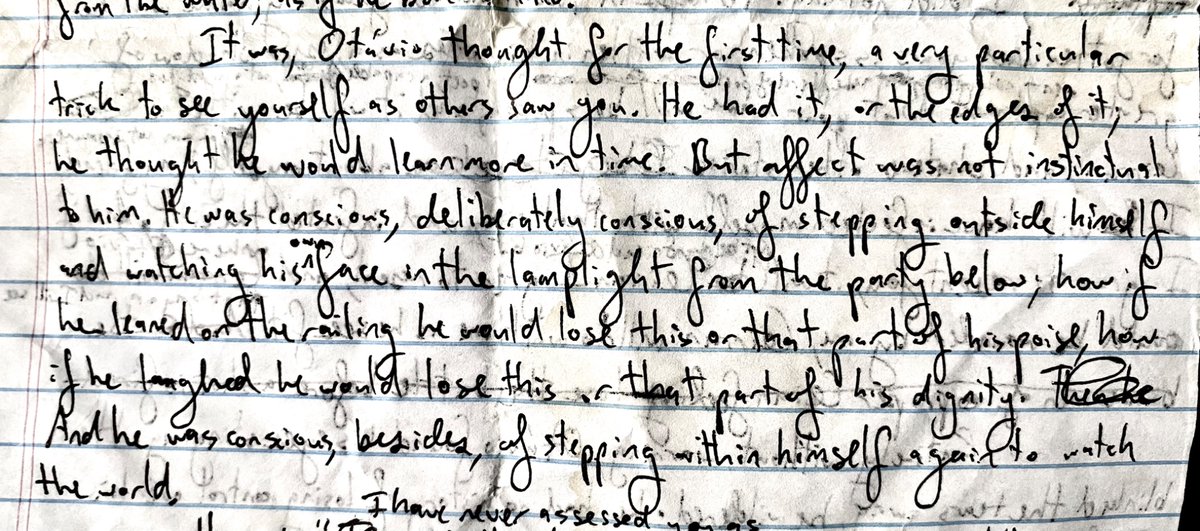 from the world, as if he
It was, Otávio thought for the first time, a very particular
trick to see yourself as others saw you. He had it, or the edges of it;
he thought he would learn more in time. But affect was not instinctual
to him. He was conscious, deliberately conscious, of stepping outside himself
and watching his own face in the lamplight from the party below; how if
he leaned on the railing he would lose this or that part of his poise, how
if he laughed he would lose this or that part of his dignity.
And he was conscious, besides, of stepping within himself again to watch
the world.
I have never assessed you as